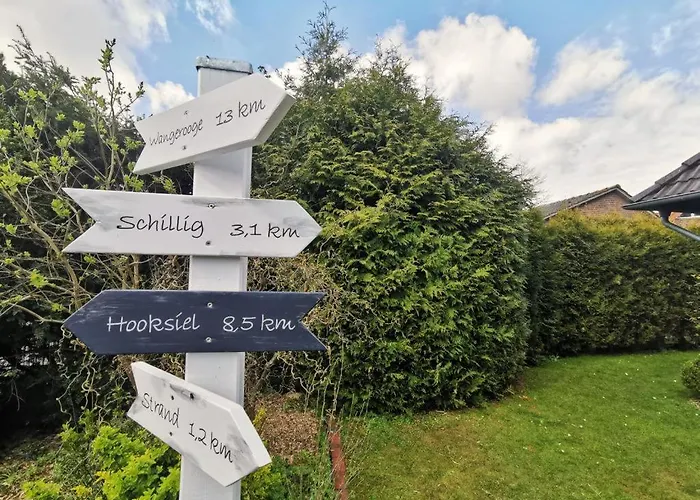 Wangerooge 13 km
Schillig 3,1 km
Hooksiel 8,5 km
Strand 1,2 km